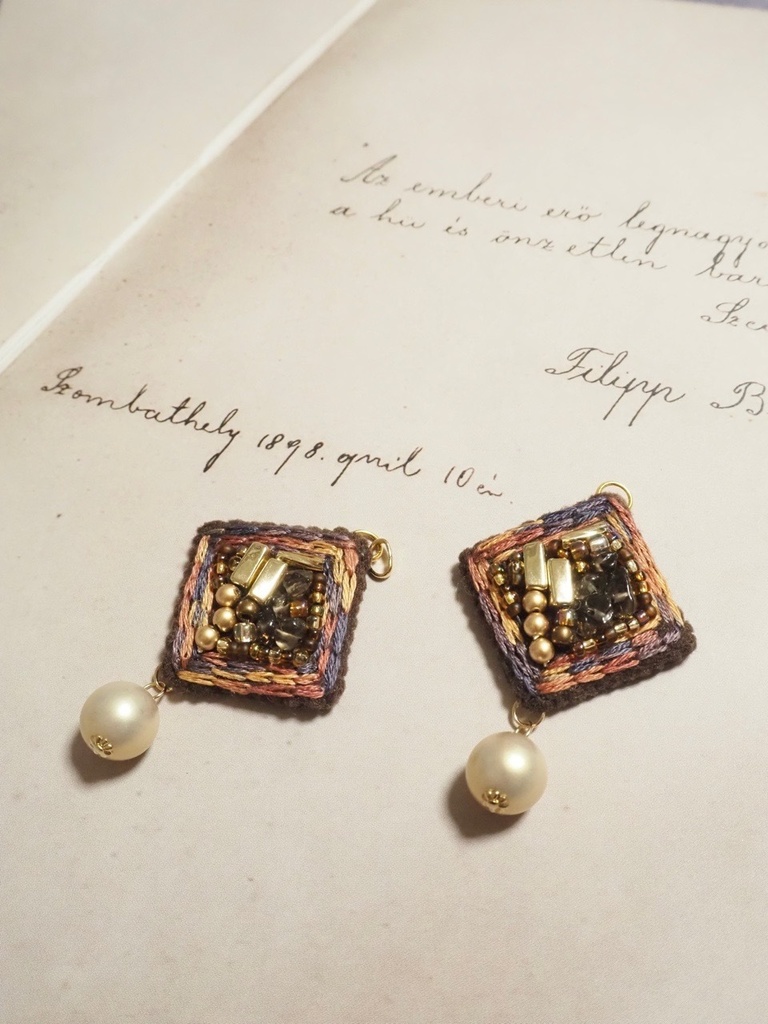 "Az emberi erő legnagyo
a hű és önzetlen bar
Sze
Filipp B
Szombathely 1898. april 10 én.